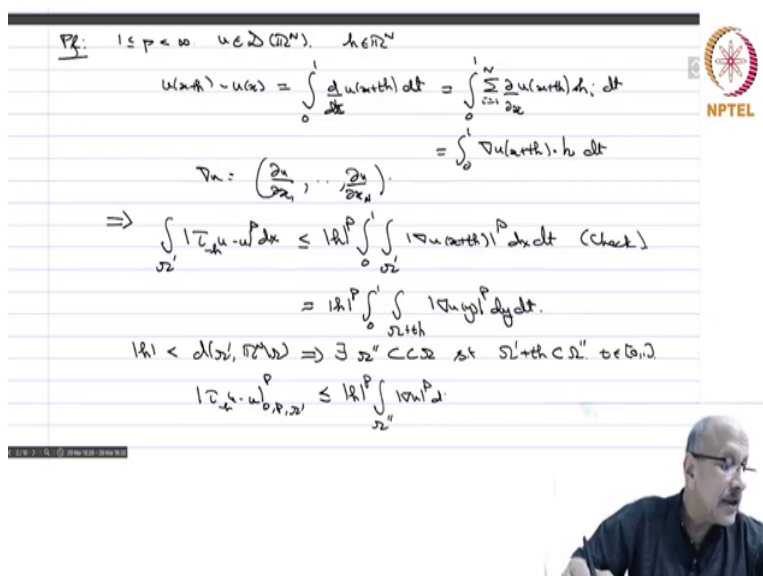 Pf: 1 ≤ p < ∞ u ∈ D(ℝᴺ). h ∈ ℝᴺ
u(x+h) - u(x) = ∫₀¹ d/dt u(x+th) dt = ∫₀¹ Σᵢ₌₁ᴺ ∂/∂x u(x+th) hᵢ dt
= ∫₀¹ ∇u(x+th)·h dt
∇u = (∂u/∂x₁, ..., ∂u/∂x_N).
⇒ ∫_Ω' |τ_-h u - u|ᵖ dx ≤ |h|ᵖ ∫₀¹ ∫_Ω' |∇u(x+th)|ᵖ dx dt (Check)
= |h|ᵖ ∫₀¹ ∫_Ω+th |∇u(y)|ᵖ dy dt.
|h| < d(Ω', ℝᴺ\Ω) ⇒ ∃ Ω'' ⊂⊂ Ω st Ω'+th ⊂ Ω'' t ∈ [0,1].
|τ_-h u - u|ᵖ_0,p,Ω' ≤ |h|ᵖ ∫_Ω'' |∇u|ᵖ d
NPTEL